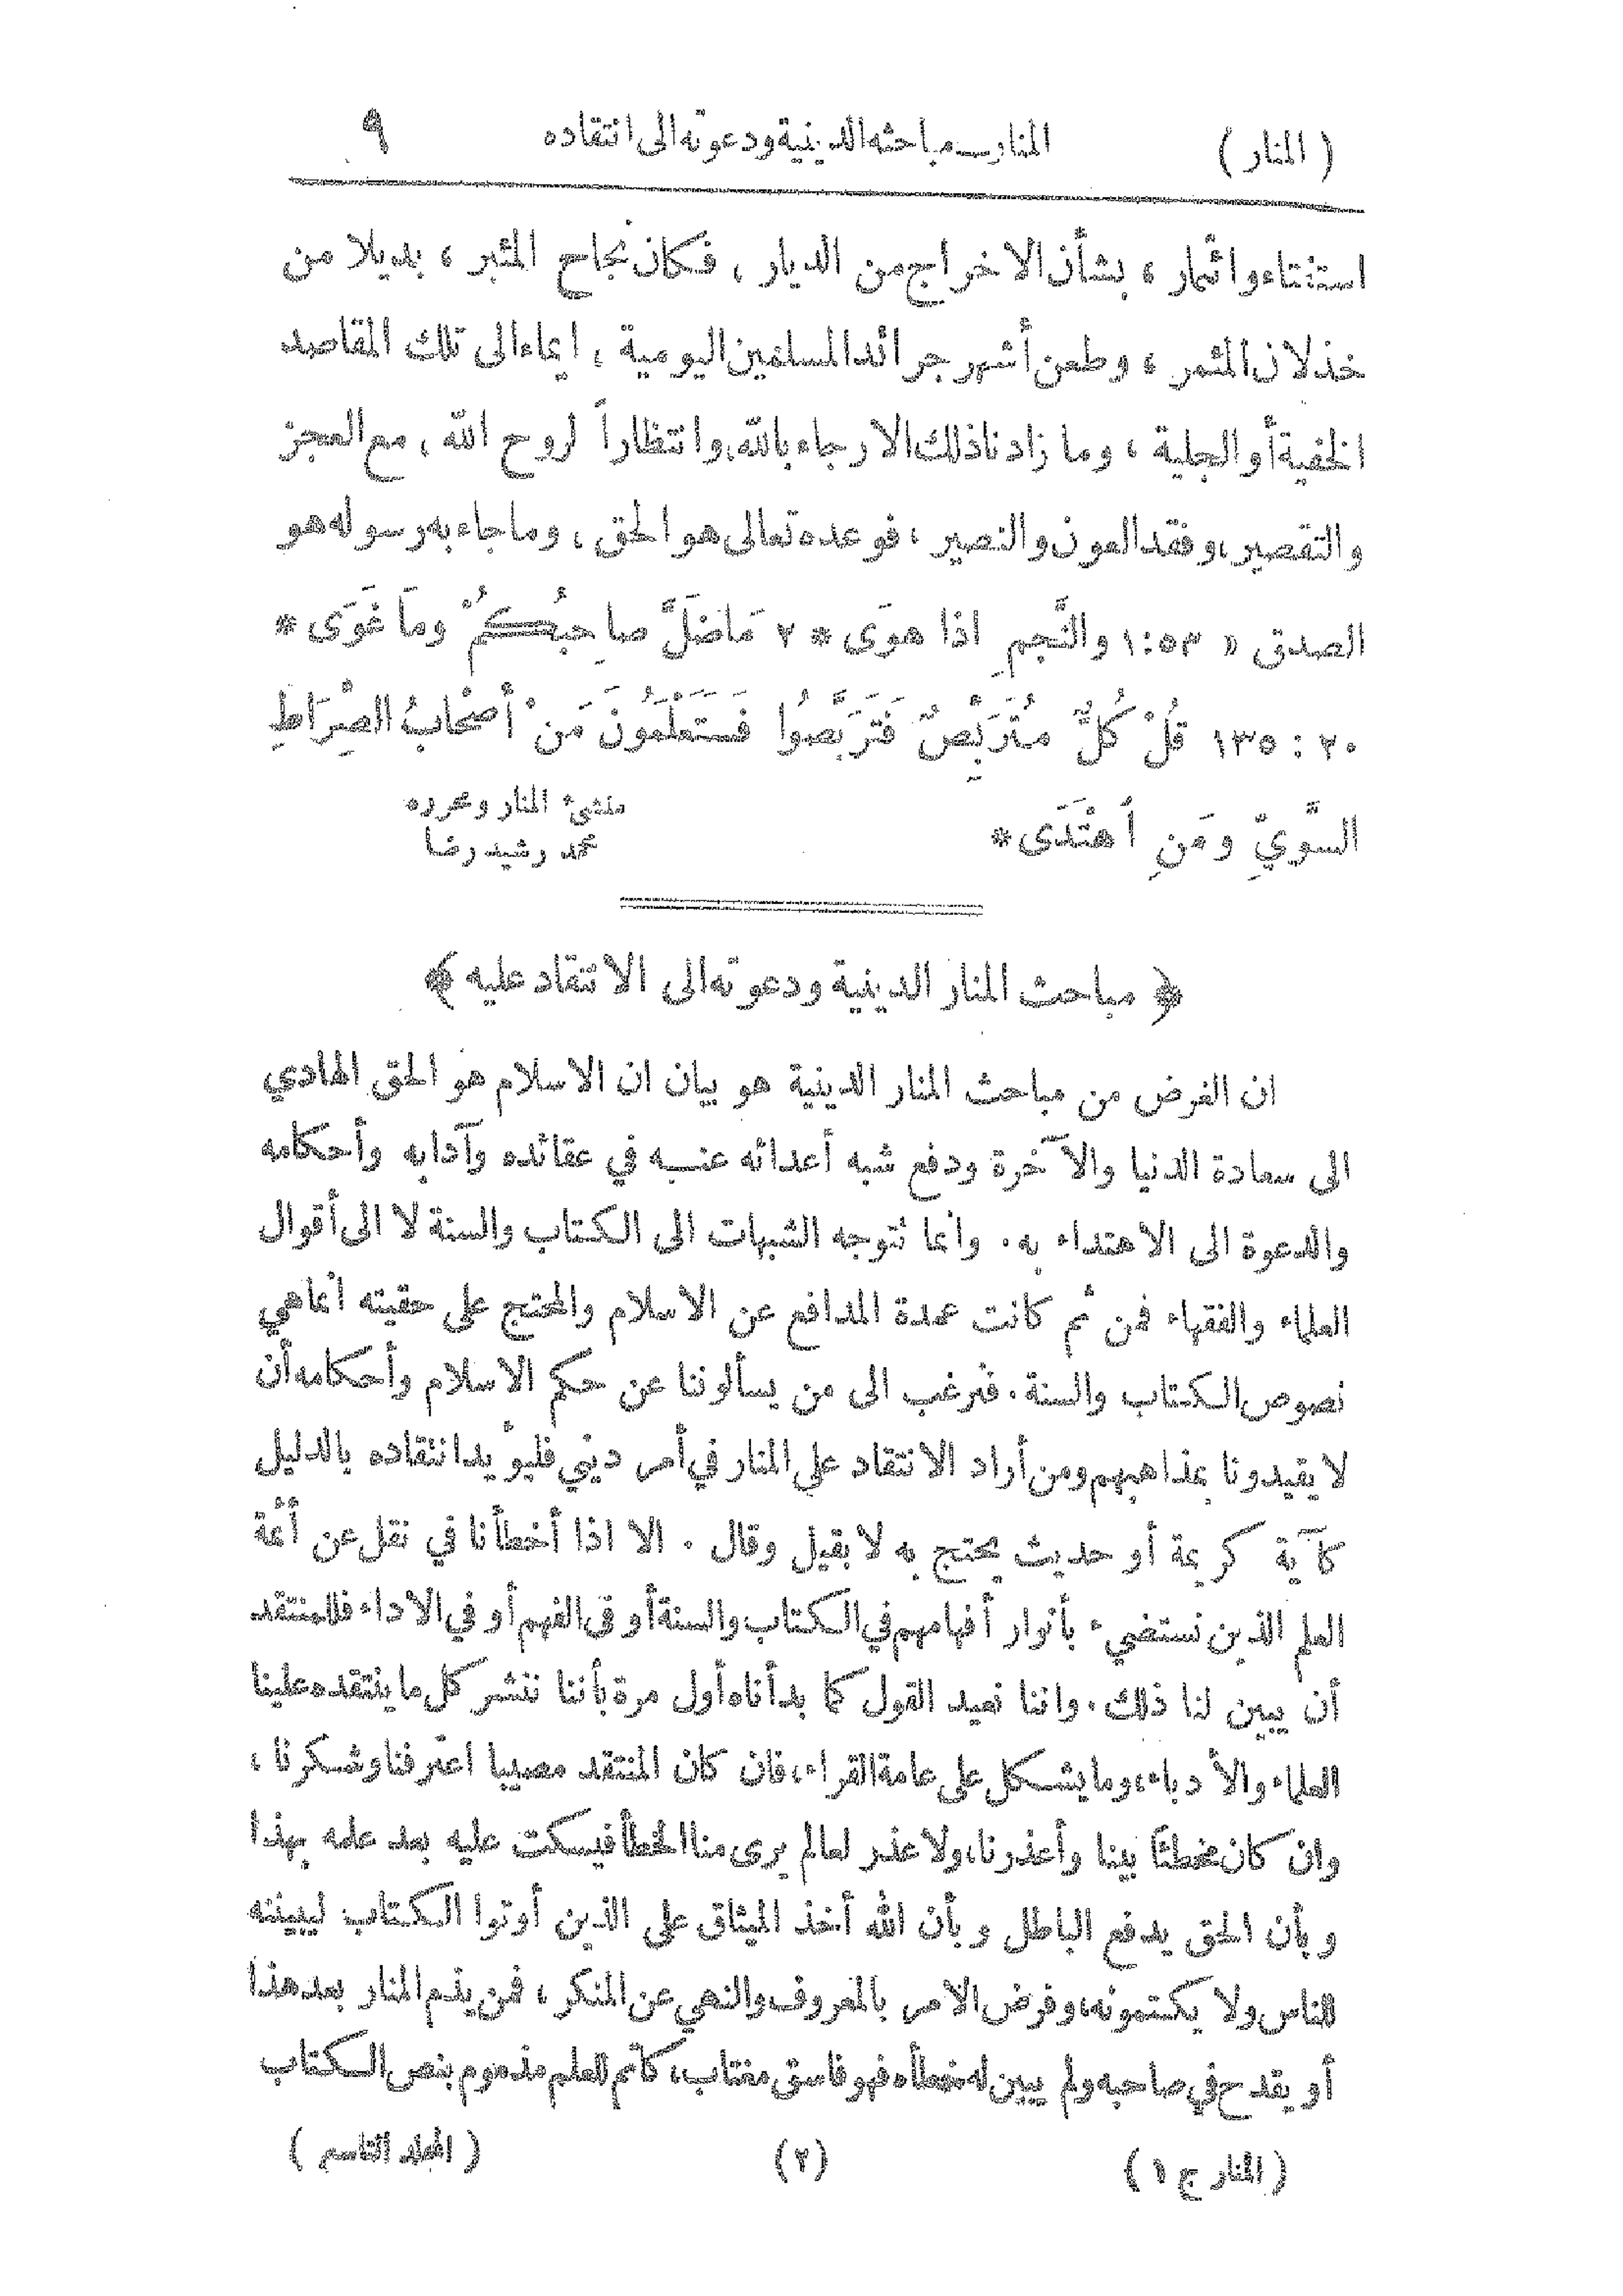 ( المنار ) المنار. مباحثه الدينية ودعوته الى انتقاده ٩
استفتاء واثمار ، بشأن الاخراج من الديار ، فكان نجاح المثبر ، بديلا من
خذلان المثمر ، وطعن أشهر جرائد المسلمين اليومية ، ايماء الى تلك المقاصد
الخفية أو الجلية ، وما زادنا ذلك الا رجاء بالله، وانتظاراً لروح الله ، مع العجز
والتقصير، وفقد العون والنصير ، فوعده تعالى هو الحق ، وما جاء به رسوله هو
الصدق « ٥٣:١ والنَّجمِ اذا هوَى * ٢ مَا ضَلَّ صاحِبُكُمْ ومَا غَوَى *
٢٠ : ١٣٥ قُلْ كُلٌّ مُتَرَبِّصٌ فَتَرَبَّصُوا فَسَتَعْلَمُونَ مَنْ أصْحَابُ الصِّرَاطِ
السَّوِيِّ ومَنِ أهْتَدَى *
منشئ المنار ومحرره
محمد رشيد رضا
﴿ مباحث المنار الدينية ودعوته الى الانتقاد عليه ﴾
ان الغرض من مباحث المنار الدينية هو بيان ان الاسلام هو الحق الهادي
الى سعادة الدنيا والآخرة ودفع شبه أعدائه عنه في عقائده وآدابه وأحكامه
والدعوة الى الاهتداء به . وانما تتوجه الشبهات الى الكتاب والسنة لا الى أقوال
العلماء والفقهاء فمن ثم كانت عمدة المدافع عن الاسلام والمحتج على حقيته انما هي
نصوص الكتاب والسنة . فنرغب الى من يسألوننا عن حكم الاسلام وأحكامه أن
لا يقيدونا بمذاهبهم ومن أراد الانتقاد على المنار في أمر ديني فليؤيد انتقاده بالدليل
كآية كريمة أو حديث يحتج به لا بقيل وقال . الا اذا أخطأنا في نقل عن أئمة
العلم الذين نستضيء بأنوار أفهامهم في الكتاب والسنة أو في الفهم أو في الاداء فللمنتقد
أن يبين لنا ذلك . واننا نعيد القول كما بدأناه أول مرة بأننا ننشر كل ما ينتقده علينا
العلماء والأدباء، وما يشكل على عامة القراء، فان كان المنتقد مصيبا اعترفنا وشكرنا ،
وان كان مخطئا بينا وأعذرنا، ولا عذر لعالم يرى منا الخطأ فيسكت عليه بعد علمه بهذا
وبأن الحق يدفع الباطل وبأن الله أخذ الميثاق على الذين أوتوا الكتاب ليبيننه
للناس ولا يكتمونه، وفرض الامر بالمعروف والنهي عن المنكر ، فمن يذم المنار بعد هذا
أو يقدح في صاحبه ولم يبين له خطأه فهو فاسق مغتاب، كاتم للعلم مذموم بنص الكتاب
( المنار ج ١ ) (٢) ( المجلد التاسع )